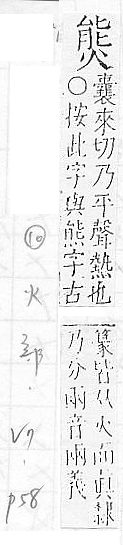 熋
囊來切乃平聲熱也
○按此字與熊字古
篆皆从火而眞隸
乃分兩音兩義
⑩ 火部. V9. p58